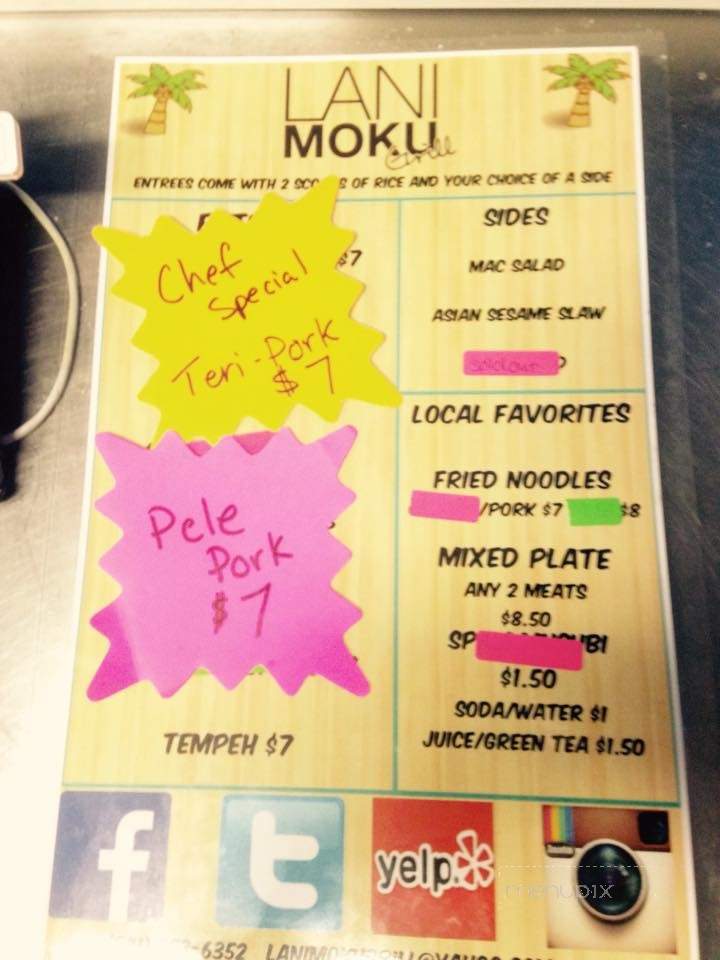 LANI
MOKU
Grill
ENTREES COME WITH 2 OF RICE AND YOUR CHOICE OF A SIDE
$7
Chef
Special
Teri-Pork
$7
Pele
Pork
$7
TEMPEH $7
SIDES
MAC SALAD
ASIAN SESAME SLAW
sold out
LOCAL FAVORITES
FRIED NOODLES
/PORK $7 $8
MIXED PLATE
ANY 2 MEATS
$8.50
$1.50
SODA/WATER $1
JUICE/GREEN TEA $1.50
f
t
yelp
menupix
-6352